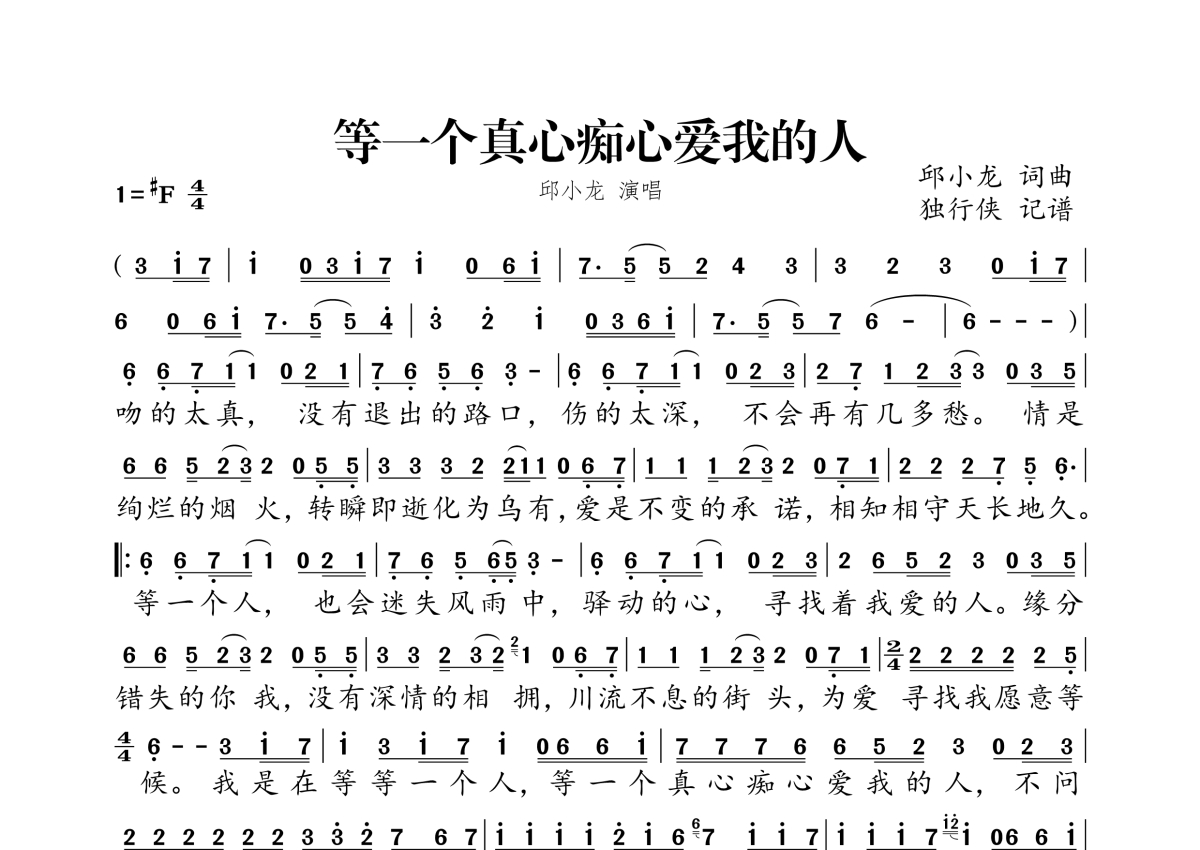 等一个真心痴心爱我的人
邱小龙 演唱
邱小龙 词曲
独行侠 记谱
1=♯F 4/4
( 3 i 7 | i 0 3 i 7 i 0 6 i | 7· 5 5 2 4 3 | 3 2 3 0 i 7 |
6 0 6 i 7· 5 5 4 | 3 2 i 0 3 6 i | 7· 5 5 7 6 - | 6 - - - ) |
6 6 7 1 1 0 2 1 | 7 6 5 6 3 - | 6 6 7 1 1 0 2 3 | 2 7 1 2 3 3 0 3 5 |
吻的太真， 没有退出的路口，伤的太深， 不会再有几多愁。 情是
6 6 5 2 3 2 0 5 5 | 3 3 3 2 2 1 1 0 6 7 | 1 1 1 2 3 2 0 7 1 | 2 2 2 7 5 6· |
绚烂的烟 火，转瞬即逝化为乌有，爱是不变的承 诺，相知相守天长地久。
‖: 6 6 7 1 1 0 2 1 | 7 6 5 6 5 3 - | 6 6 7 1 1 0 2 3 | 2 6 5 2 3 0 3 5 |
等一个人， 也会迷失风雨中，驿动的心， 寻找着我爱的人。缘分
6 6 5 2 3 2 0 5 5 | 3 3 2 3 2 2 1 0 6 7 | 1 1 1 2 3 2 0 7 1 | 2/4 2 2 2 2 2 5 |
错失的你 我，没有深情的相 拥，川流不息的街 头，为爱 寻找我愿意等
4/4 6 - - 3 i 7 | i 3 i 7 i 0 6 6 i | 7 7 7 6 6 5 2 3 0 2 3 |
候。我是在等等一个人，等一个真心痴心爱我的人，不问
2 2 2 2 2 2 3 3 2 7 6 7 | i i i i 2 i 6 6 7 i i 7 | i i i 7 i 2 i 0 6 6 i